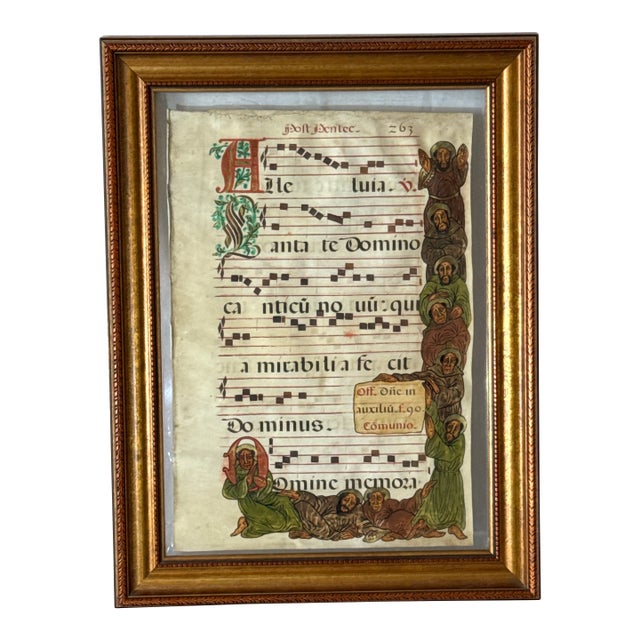 Post Pentec. 263
Alle luia. V.
Canta te Domino
ca nticū no uū: qui
a mirabili a fe cit
Do minus.
Off. Dñe in
auxiliū. f. 90.
Cōmunio.
Domine memora